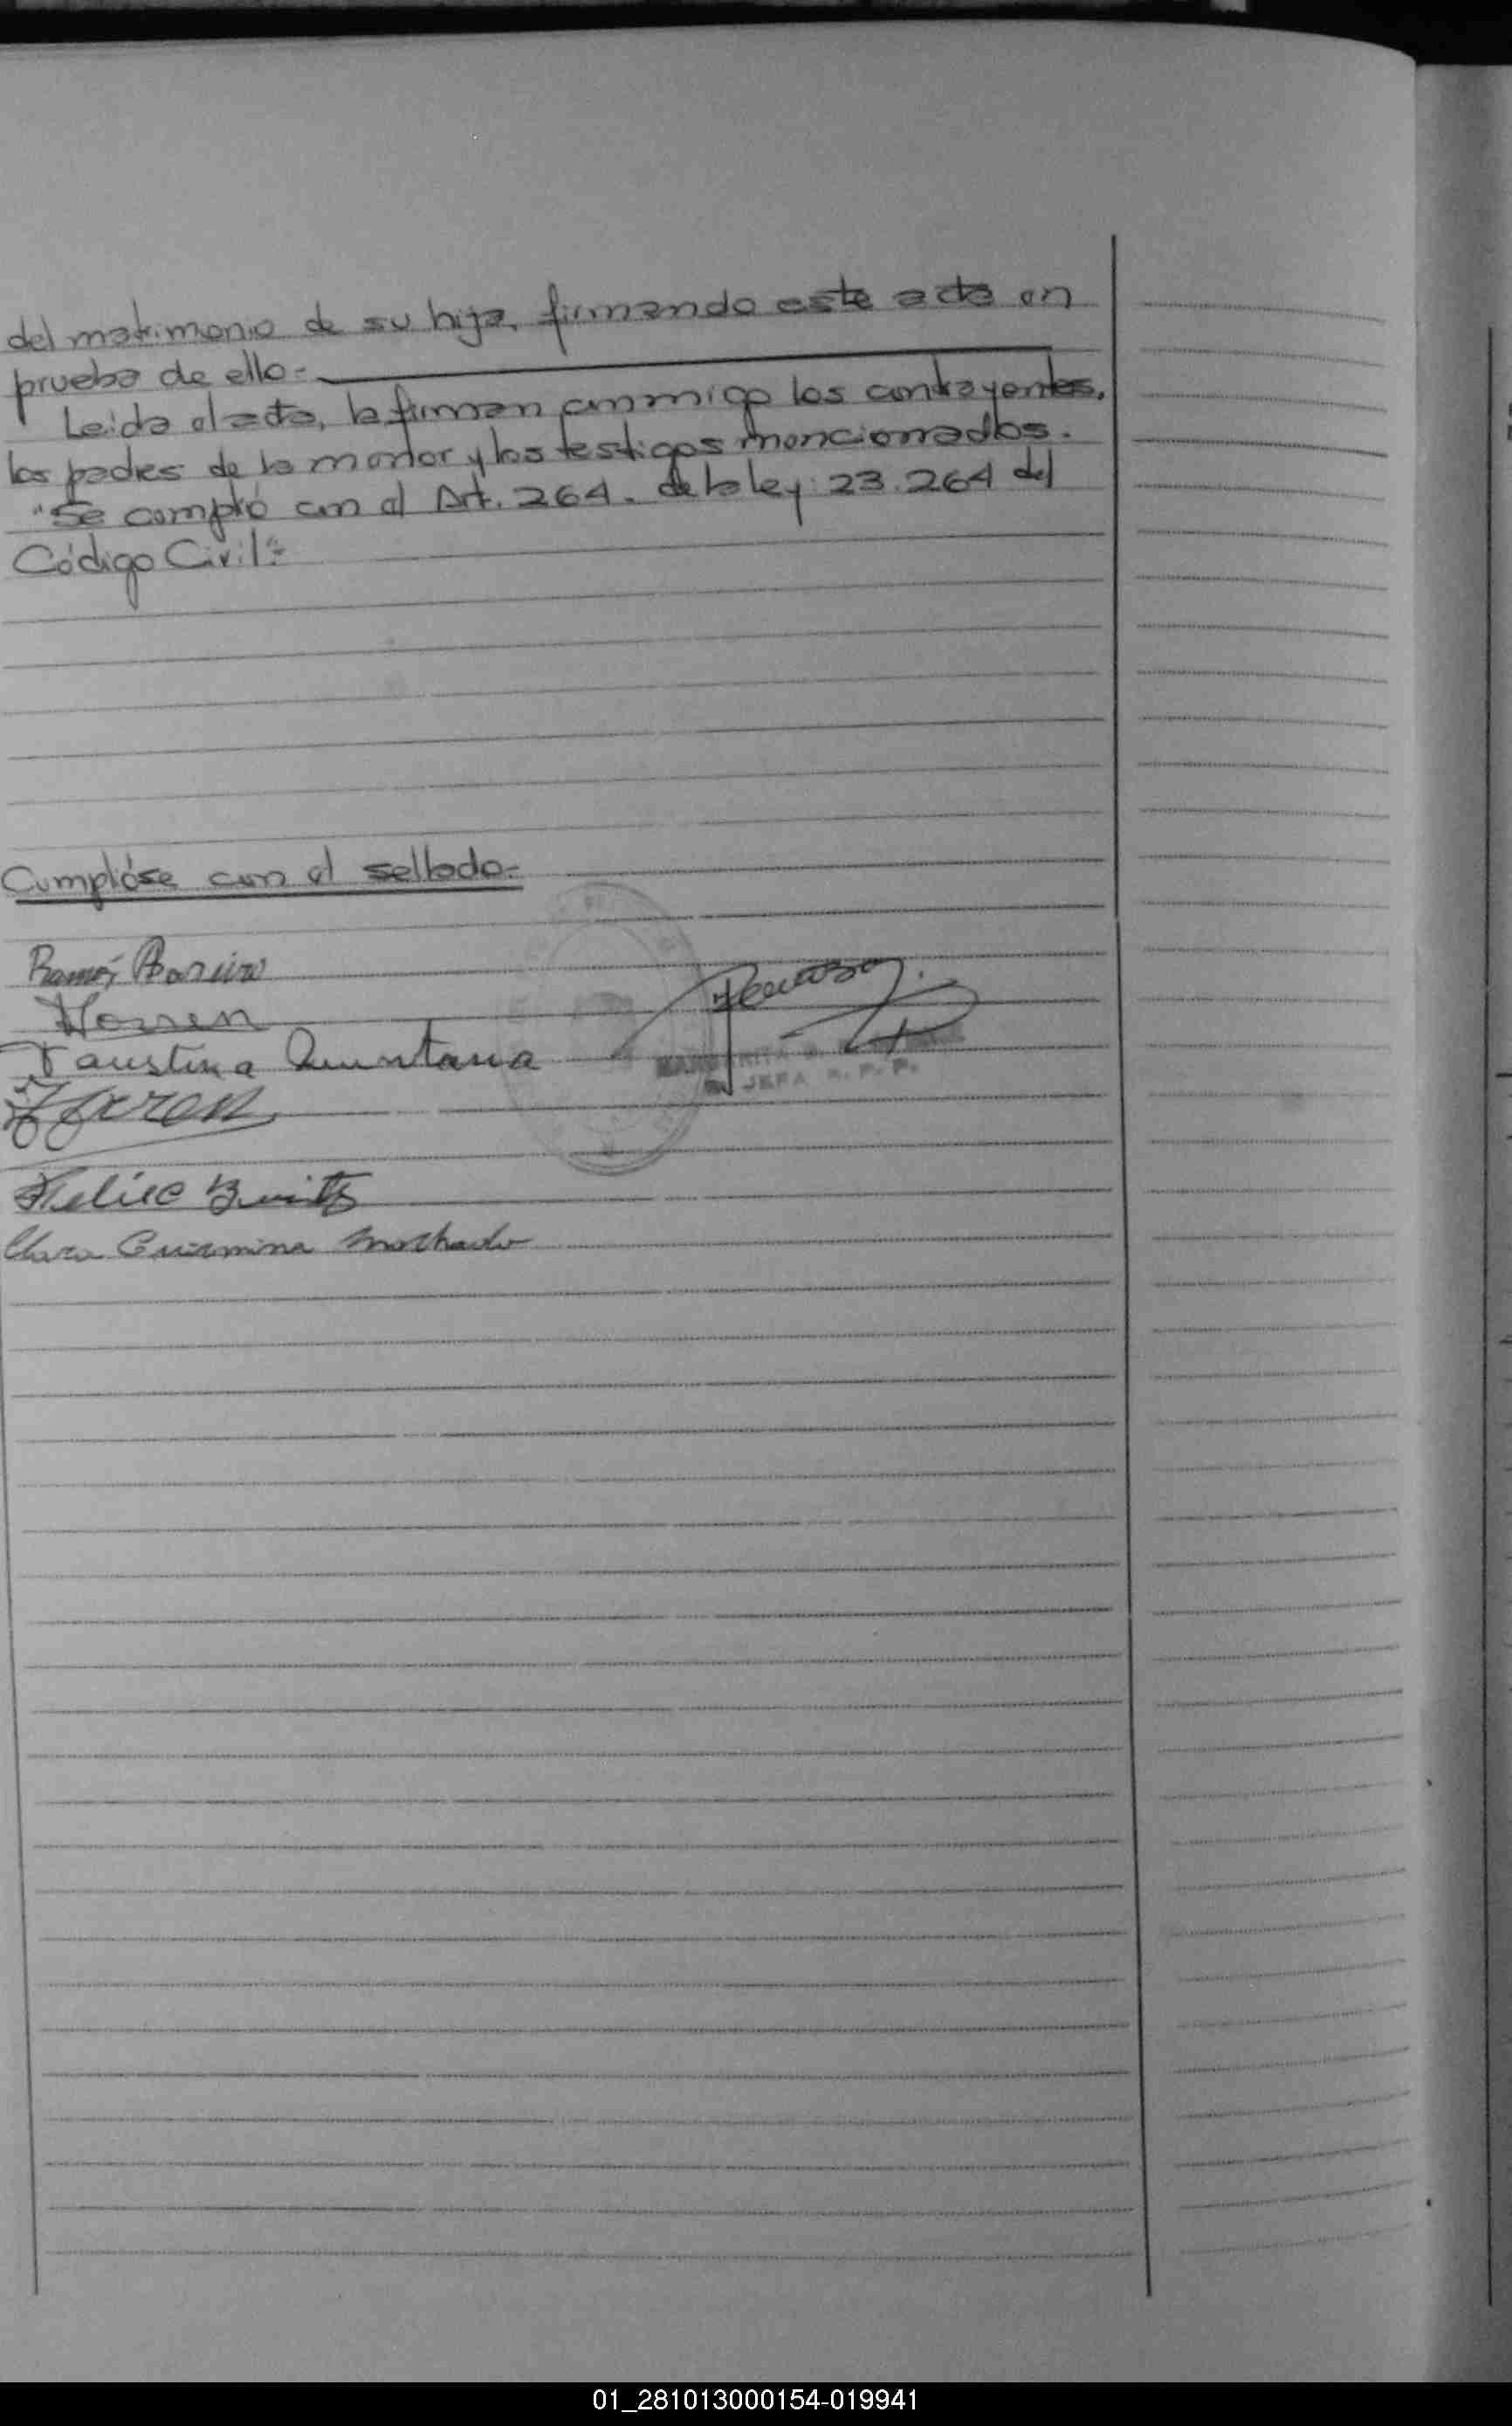 del matrimonio de su hija, firmando este acta en
prueba de ello.-
Leída el acta, la firman conmigo los contrayentes,
los padres de la menor y los testigos mencionados.
"Se cumplió con el Art. 264. de la ley: 23.264 del
Código Civil".-
Cumplióse con el sellado.-
Ramón Bareiro
Faustina Quintana
MARGARITA
JEFA R. P. P.
Clara Guirmina Machado
01_281013000154-019941